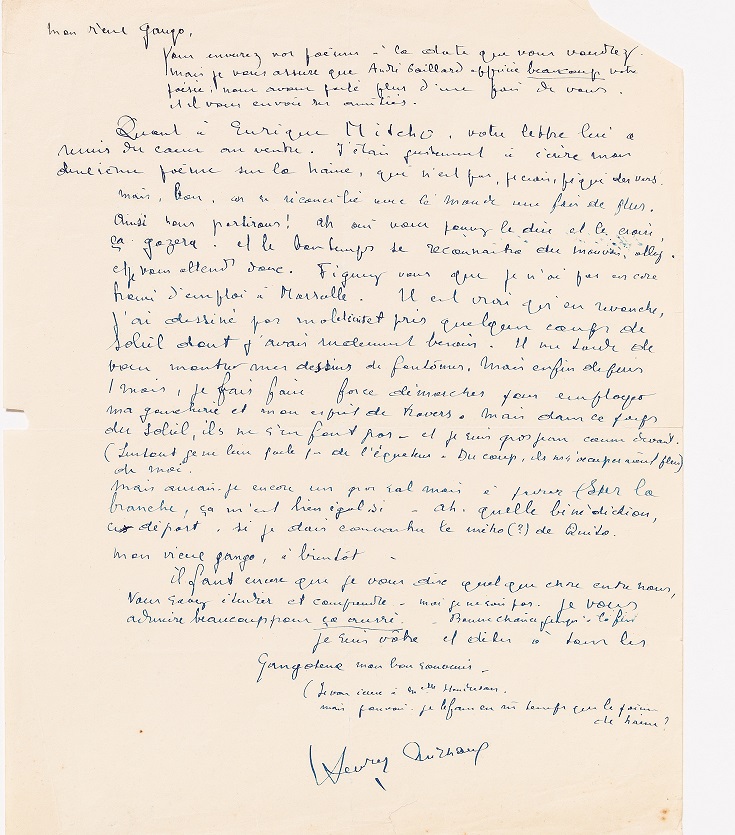 mon vieux Gango,
Vous enverrez vos poèmes à la date que vous voudrez.
mais je vous assure que André Gaillard apprécie beaucoup votre
poésie, nous avons parlé plus d'une fois de vous.
et il vous envoie ses amitiés.
Quant à Enrique Mitcho, votre lettre lui a
remis du cœur au ventre. J'étais justement à écrire mon
deuxième poème sur la haine, qui n'est pas, je crois, piqué des vers.
mais, bon, on se réconcilie avec le monde une fois de plus.
Ainsi nous partirons! Ah oui vous pouvez le dire et le croire,
ça gazera. et le bon temps se reconnaîtra du mauvais, allez.
et je vous attends donc. Figurez vous que je n'ai pas encore
trouvé d'emploi à Marseille. Il est vrai qu'en revanche,
j'ai dessiné pas mal et pris quelques coups de
soleil dont j'avais rudement besoin. Il me tarde de
vous montrer mes dessins de fantômes. Mais enfin depuis
1 mois, je fais faire force démarches pour employer
ma gaucherie et mon esprit de travers. Mais dans ce pays
du soleil, ils ne s'en font pas - et je suis gros jean comme devant.
(Surtout je ne leur parle pas de l'équateur - Du coup, ils ne s'occuperaient plus)
de moi.
Mais aurais-je encore un gros sal mois à tirer sur la
branche, ça m'est bien égal si - Ah. quelle bénédiction,
ce départ. si je dois connaître le métro(?) de Quito.
mon vieux gango, à bientôt -
il faut encore que je vous dise quelque chose entre nous,
Vous savez étudier et comprendre - moi je ne sais pas. je vous
admire beaucoup pour ça aussi. - Bonne chance jusqu'à la fin
je suis vôtre et dites à tous les
Gangotena mon bon souvenir -
(
mais pouvais-je le faire en même temps que le poème
de haine?
Henry Michaux